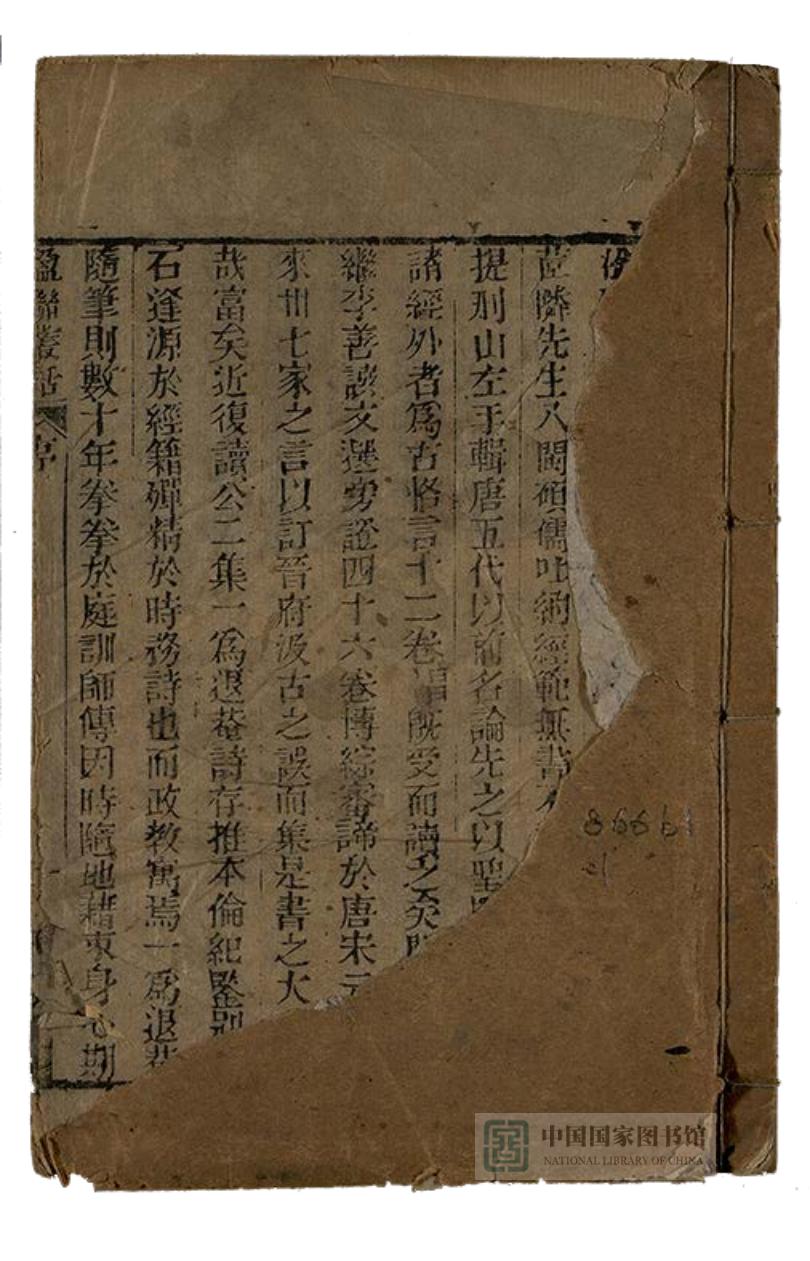 茝隣先生八閩碩儒吐納經範無書不
提刑山左手輯唐五代以前名論先之以聖
諸經外者爲古格言十二卷昌既受而讀之矣
繼李善讀文選旁證四十六卷博綜審諦於唐宋元
來卅七家之言以訂晉府汲古之誤而集是書之大
哉富矣近復讀公二集一爲退菴詩存推本倫紀鑒别
石逢源於經籍殫精於時務詩也而政教寓焉一爲退菴
隨筆則數十年拳拳於庭訓師傳因時隨地藉束身心期
楹聯叢話 序
86661
中国国家图书馆
NATIONAL LIBRARY OF CHINA